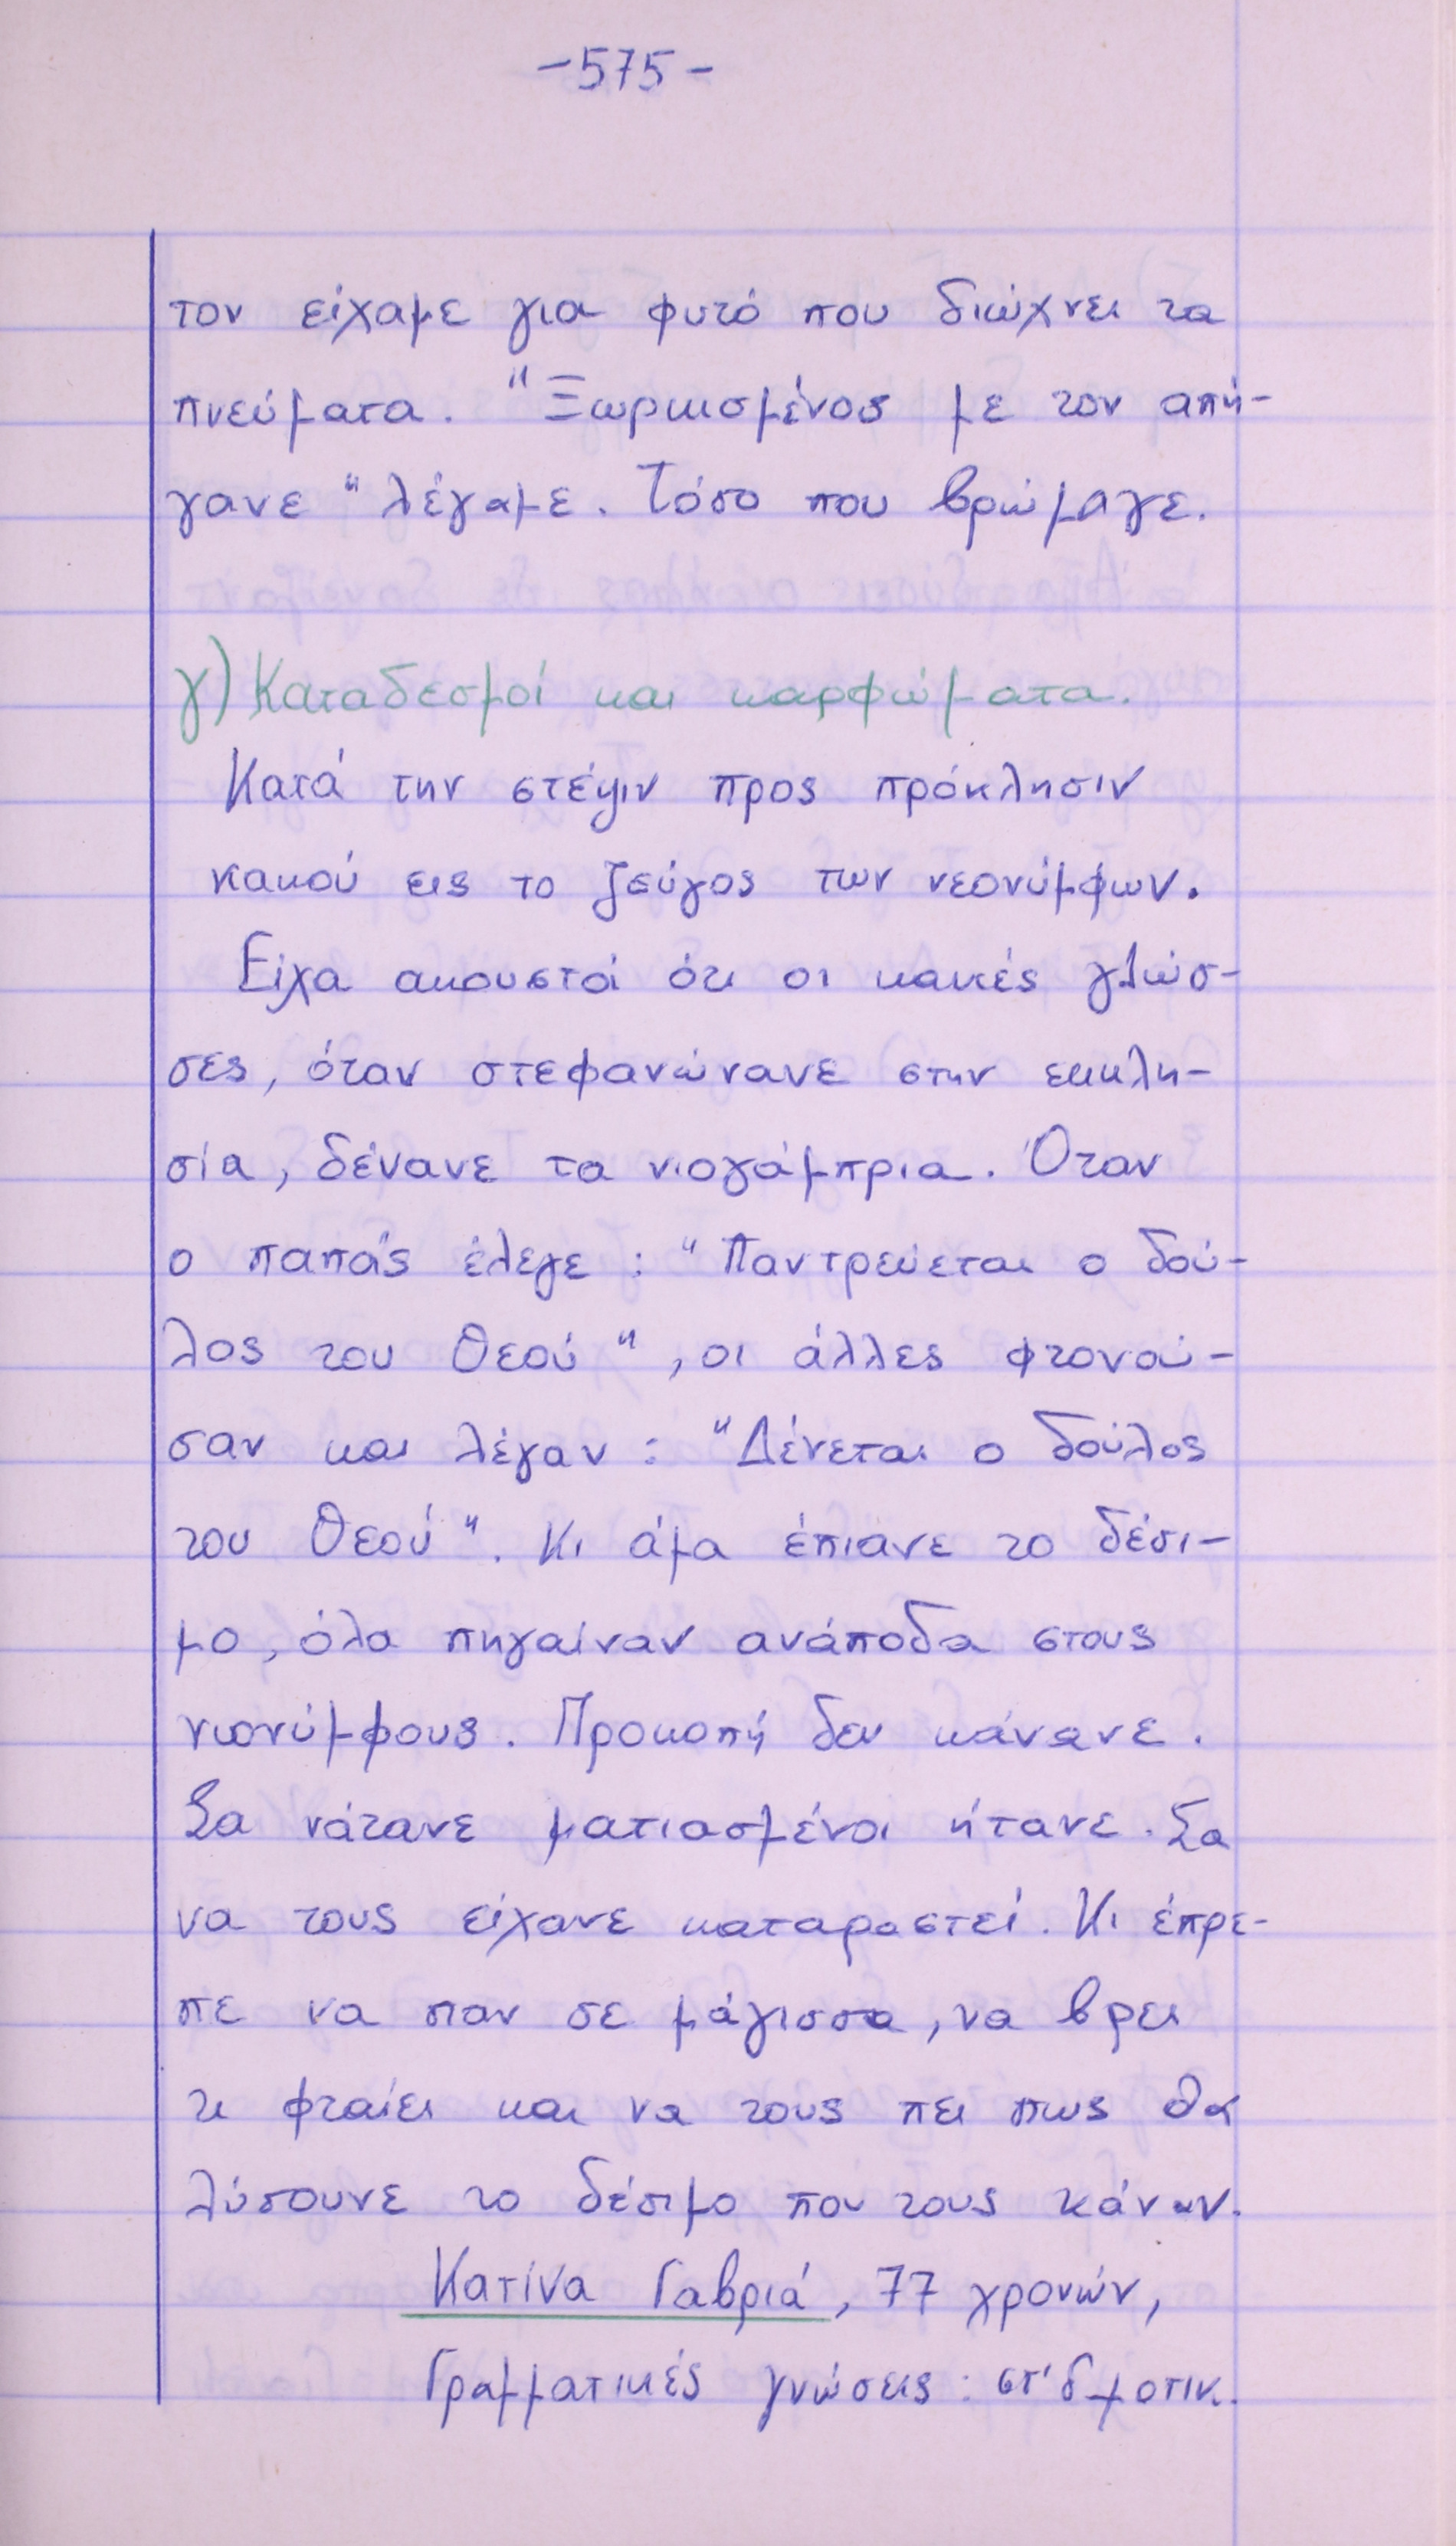 -575-
τον είχαμε για φυτό που διώχνει τα
πνεύματα. "Ξωρκισμένος με τον απή-
γανε" λέγαμε. Τόσο που βρώμαγε.
γ) Καταδεσμοί και καρφώματα.
Κατά την στέψιν προς πρόκλησιν
κακού εις το ζεύγος των νεονύμφων.
Είχα ακουστά ότι οι κακές γλώσ-
σες, όταν στεφανώνανε στην εκκλη-
σία, δένανε τα νιογάμπρια. Όταν
ο παπάς έλεγε: "Παντρεύεται ο δού-
λος του Θεού", οι άλλες φτονού-
σαν και λέγαν: "Δένεται ο δούλος
του Θεού". Κι άμα έπιανε το δέσι-
μο, όλα πηγαίναν ανάποδα στους
νιονύμφους. Προκοπή δεν κάνανε.
Σα νάτανε ματιασμένοι ήτανε. Σα
να τους είχανε καταραστεί. Κι έπρε-
πε να παν σε μάγισσα, να βρει
τι φταίει και να τους πει πως θα
λύσουνε το δέσιμο που τους κάναν.
Κατίνα Γαβριά, 77 χρονών,
Γραμματικές γνώσεις: στ' δμοτικ.